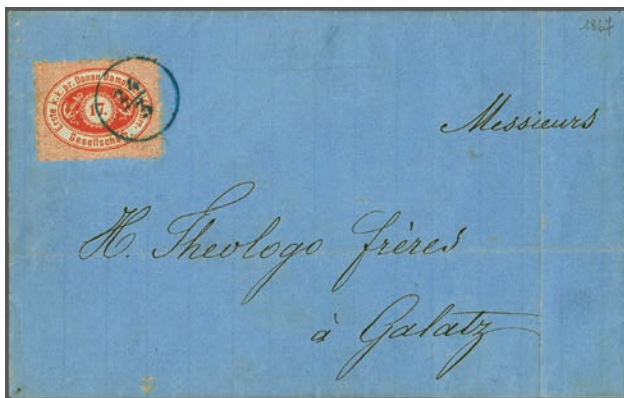 1867
Erste k.k. pr. Donau Dampfschiffahrt
17.
Gesellschaft
Messieurs
H. Theologo frères
à Galatz